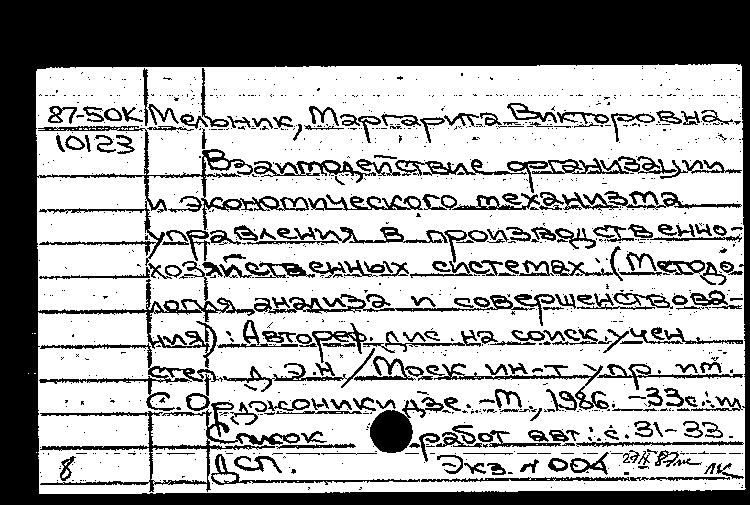 87-50К Мельник, Маргарита Викторовна
10123
Взаимодействие организации
и экономического механизма
управления в производственно-
хозяйственных системах: (Методо-
логия анализа и совершенствова-
ния): Автореф. дис. на соиск. учен.
степ. д.э.н. / Моск. ин-т упр. им.
С. Орджоникидзе. - М., 1986. - 33с.: ил
Список работ авт.: с. 31-33.
8 ДСП. Экз. № 004.